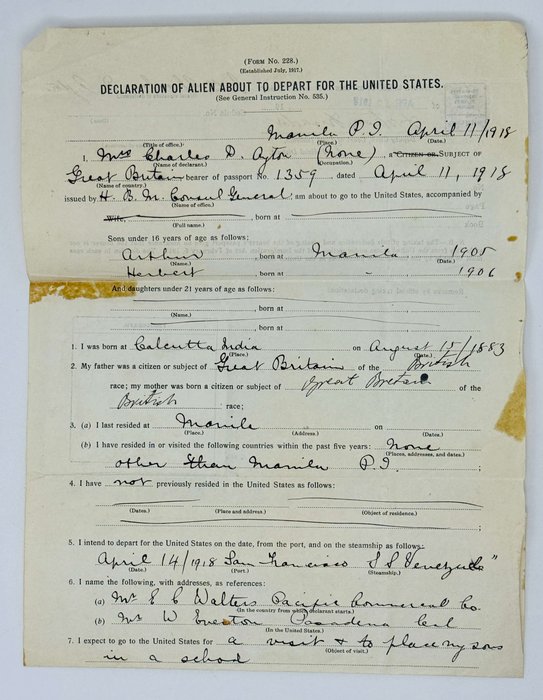 (FORM NO. 228.)
(Established July, 1917.)
DECLARATION OF ALIEN ABOUT TO DEPART FOR THE UNITED STATES.
(See General Instruction No. 535.)
Manila P. I. April 11/1918
(Title of office.) (Place.) (Date.)
1. Mrs Charles D. Ayton (None), a CITIZEN OR SUBJECT OF
(Name of declarant.) (Occupation.)
Great Britain bearer of passport No. 1359 dated April 11, 1918
(Name of country.)
issued by H. B. M. Consul General, am about to go to the United States, accompanied by
(Name of office.)
Wife, , born at
(Full name.)
Sons under 16 years of age as follows:
Arthur , born at Manila 1905
(Name.) (Date.)
Herbert , born at " 1906
And daughters under 21 years of age as follows:
, born at
(Name.)
, born at
1. I was born at Calcutta India on August 15/1883
(Place.) (Date.)
2. My father was a citizen or subject of Great Britain of the British
race; my mother was born a citizen or subject of Great Britain of the
British race;
3. (a) I last resided at Manila on
(Place.) (Address.) (Dates.)
(b) I have resided in or visited the following countries within the past five years: None
(Places, addresses, and dates.)
other than Manila P. I. ;
4. I have not previously resided in the United States as follows:
(Dates.) (Place and address.) (Object of residence.)
;
5. I intend to depart for the United States on the date, from the port, and on the steamship as follows:
April 14/1918 San Francisco S S Venezuela"
(Date.) (Port.) (Steamship.)
6. I name the following, with addresses, as references:
(a) Mr E C Walters Pacific Commercial Co.
(In the country from which declarant starts.)
(b) Mr W Everton Pasadena Cal
(In the United States.)
7. I expect to go to the United States for a visit & to place my sons
(Object of visit.)
in a school